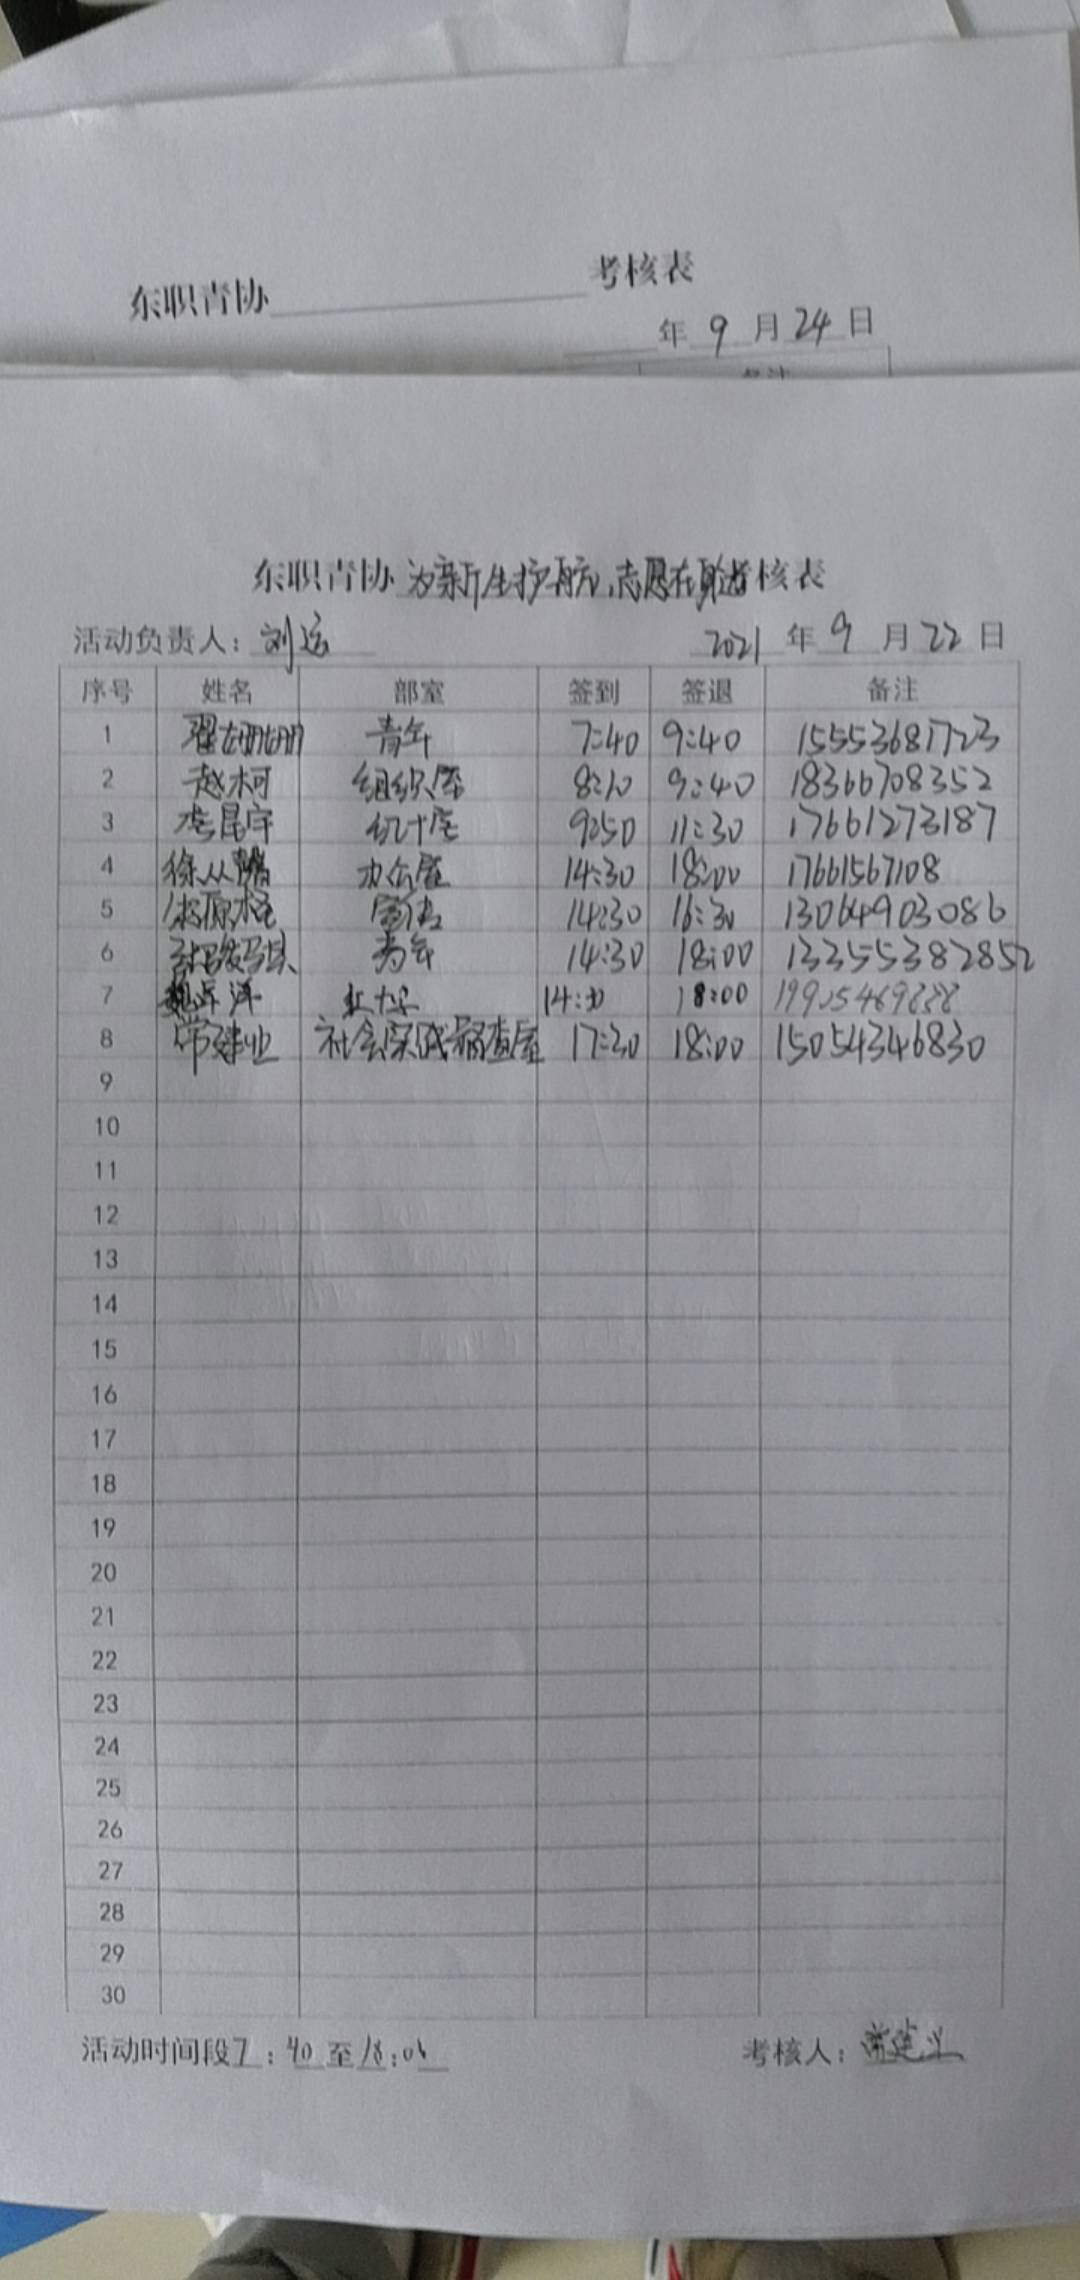 东职青协 考核表
年 9 月 24 日
备注
东职青协 为新生护航,志愿在身边 考核表
活动负责人: 刘运 2021 年 9 月 22 日
序号 姓名 部室 签到 签退 备注
1 翟姗姗 青年 7:40 9:40 15553681723
2 赵柯 组织室 8:10 9:40 18366708352
3 李昌宇 纪计室 9:50 11:30 17661273187
4 徐从 办公室 14:30 18:00 17661567108
5 14:30 16:30 13064903086
6 青年 14:30 18:00 133555382852
7 魏 洋 红十字 14:30 18:00
8 常建业 社会实践调查室 17:30 18:00 15054346830
9
10
11
12
13
14
15
16
17
18
19
20
21
22
23
24
25
26
27
28
29
30
活动时间段 7:40 至 18:00 考核人: 常建业